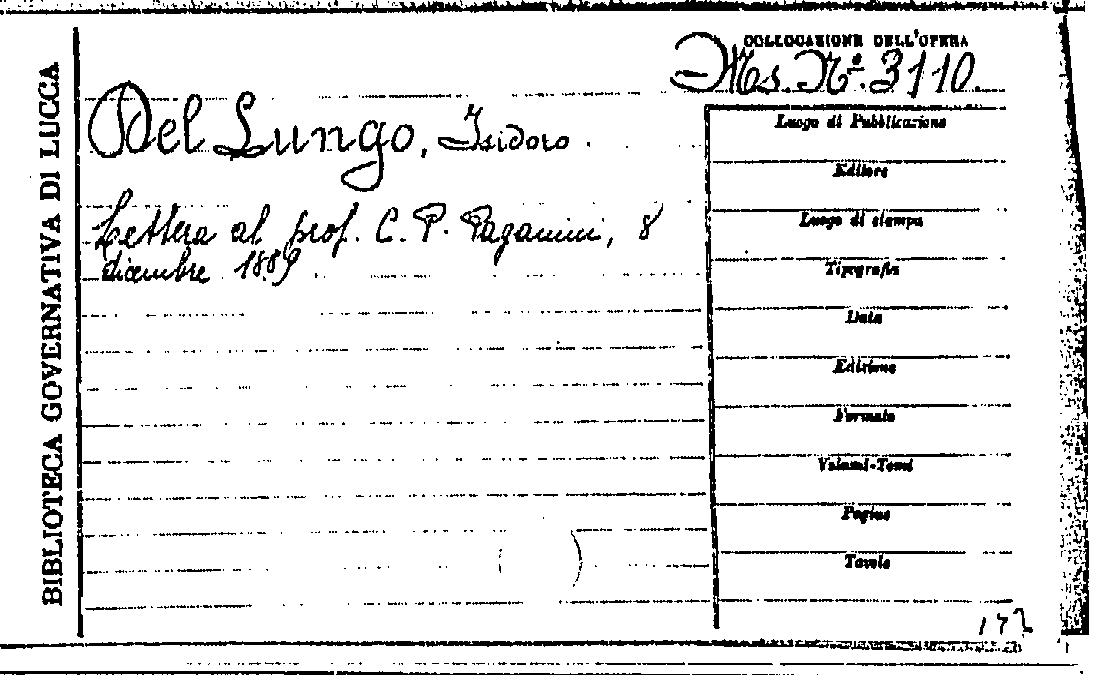 BIBLIOTECA GOVERNATIVA DI LUCCA
COLLOCAZIONE DELL'OPERA
Ms. N.º 3110.
Del Lungo, Isidoro.
Lettera al prof. C. P. Paganini, 8
dicembre 1889.
Luogo di Pubblicazione
Editore
Luogo di stampa
Tipografia
Data
Edizione
Formato
Volumi-Tomi
Pagine
Tavole